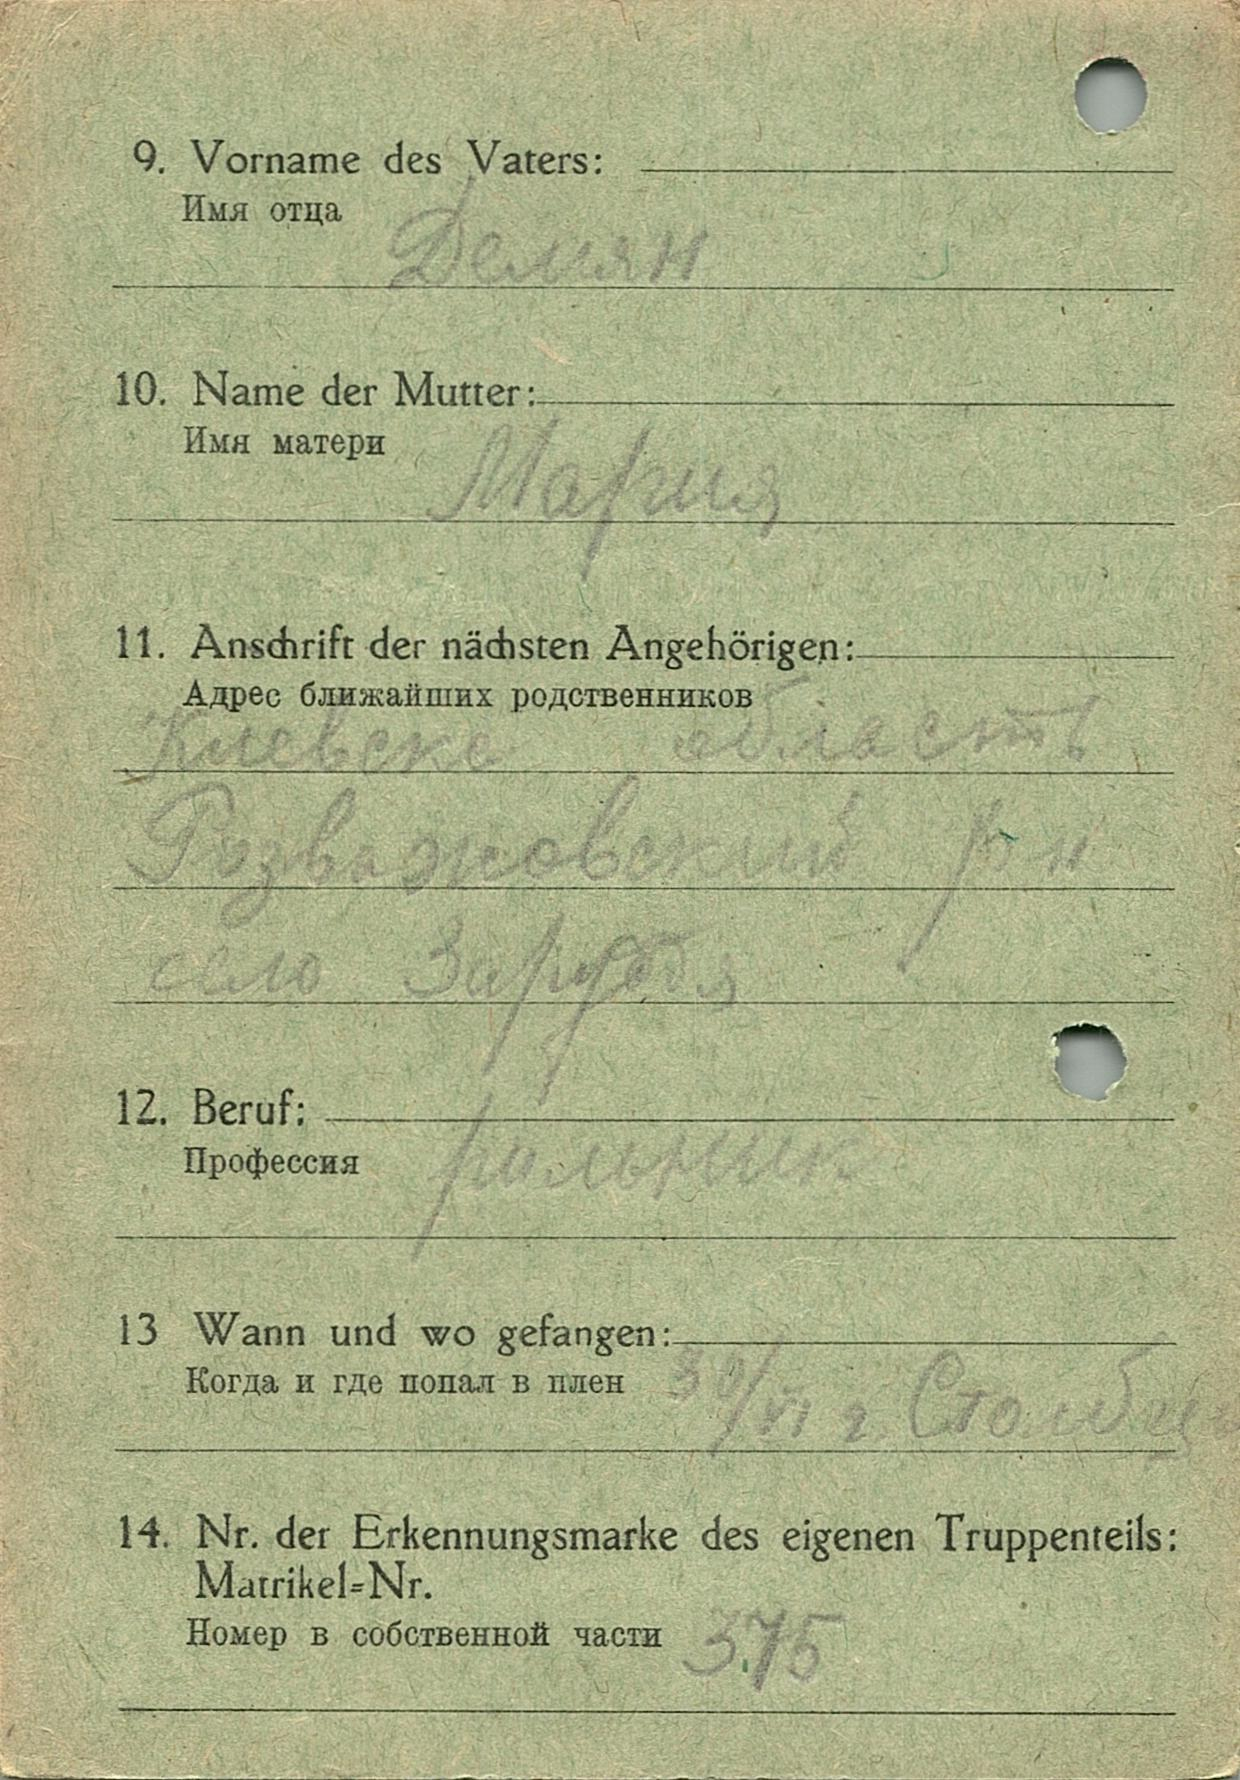 9. Vorname des Vaters:
Имя отца
Демян
10. Name der Mutter:
Имя матери
Мария
11. Anschrift der nächsten Angehörigen:
Адрес ближайших родственников
Киевске область
Розважовский рн
село Зарудя
12. Beruf:
Профессия
рильник
13 Wann und wo gefangen:
Когда и где попал в плен
30/VI г. Столбцы
14. Nr. der Erkennungsmarke des eigenen Truppenteils:
Matrikel=Nr.
Номер в собственной части
375